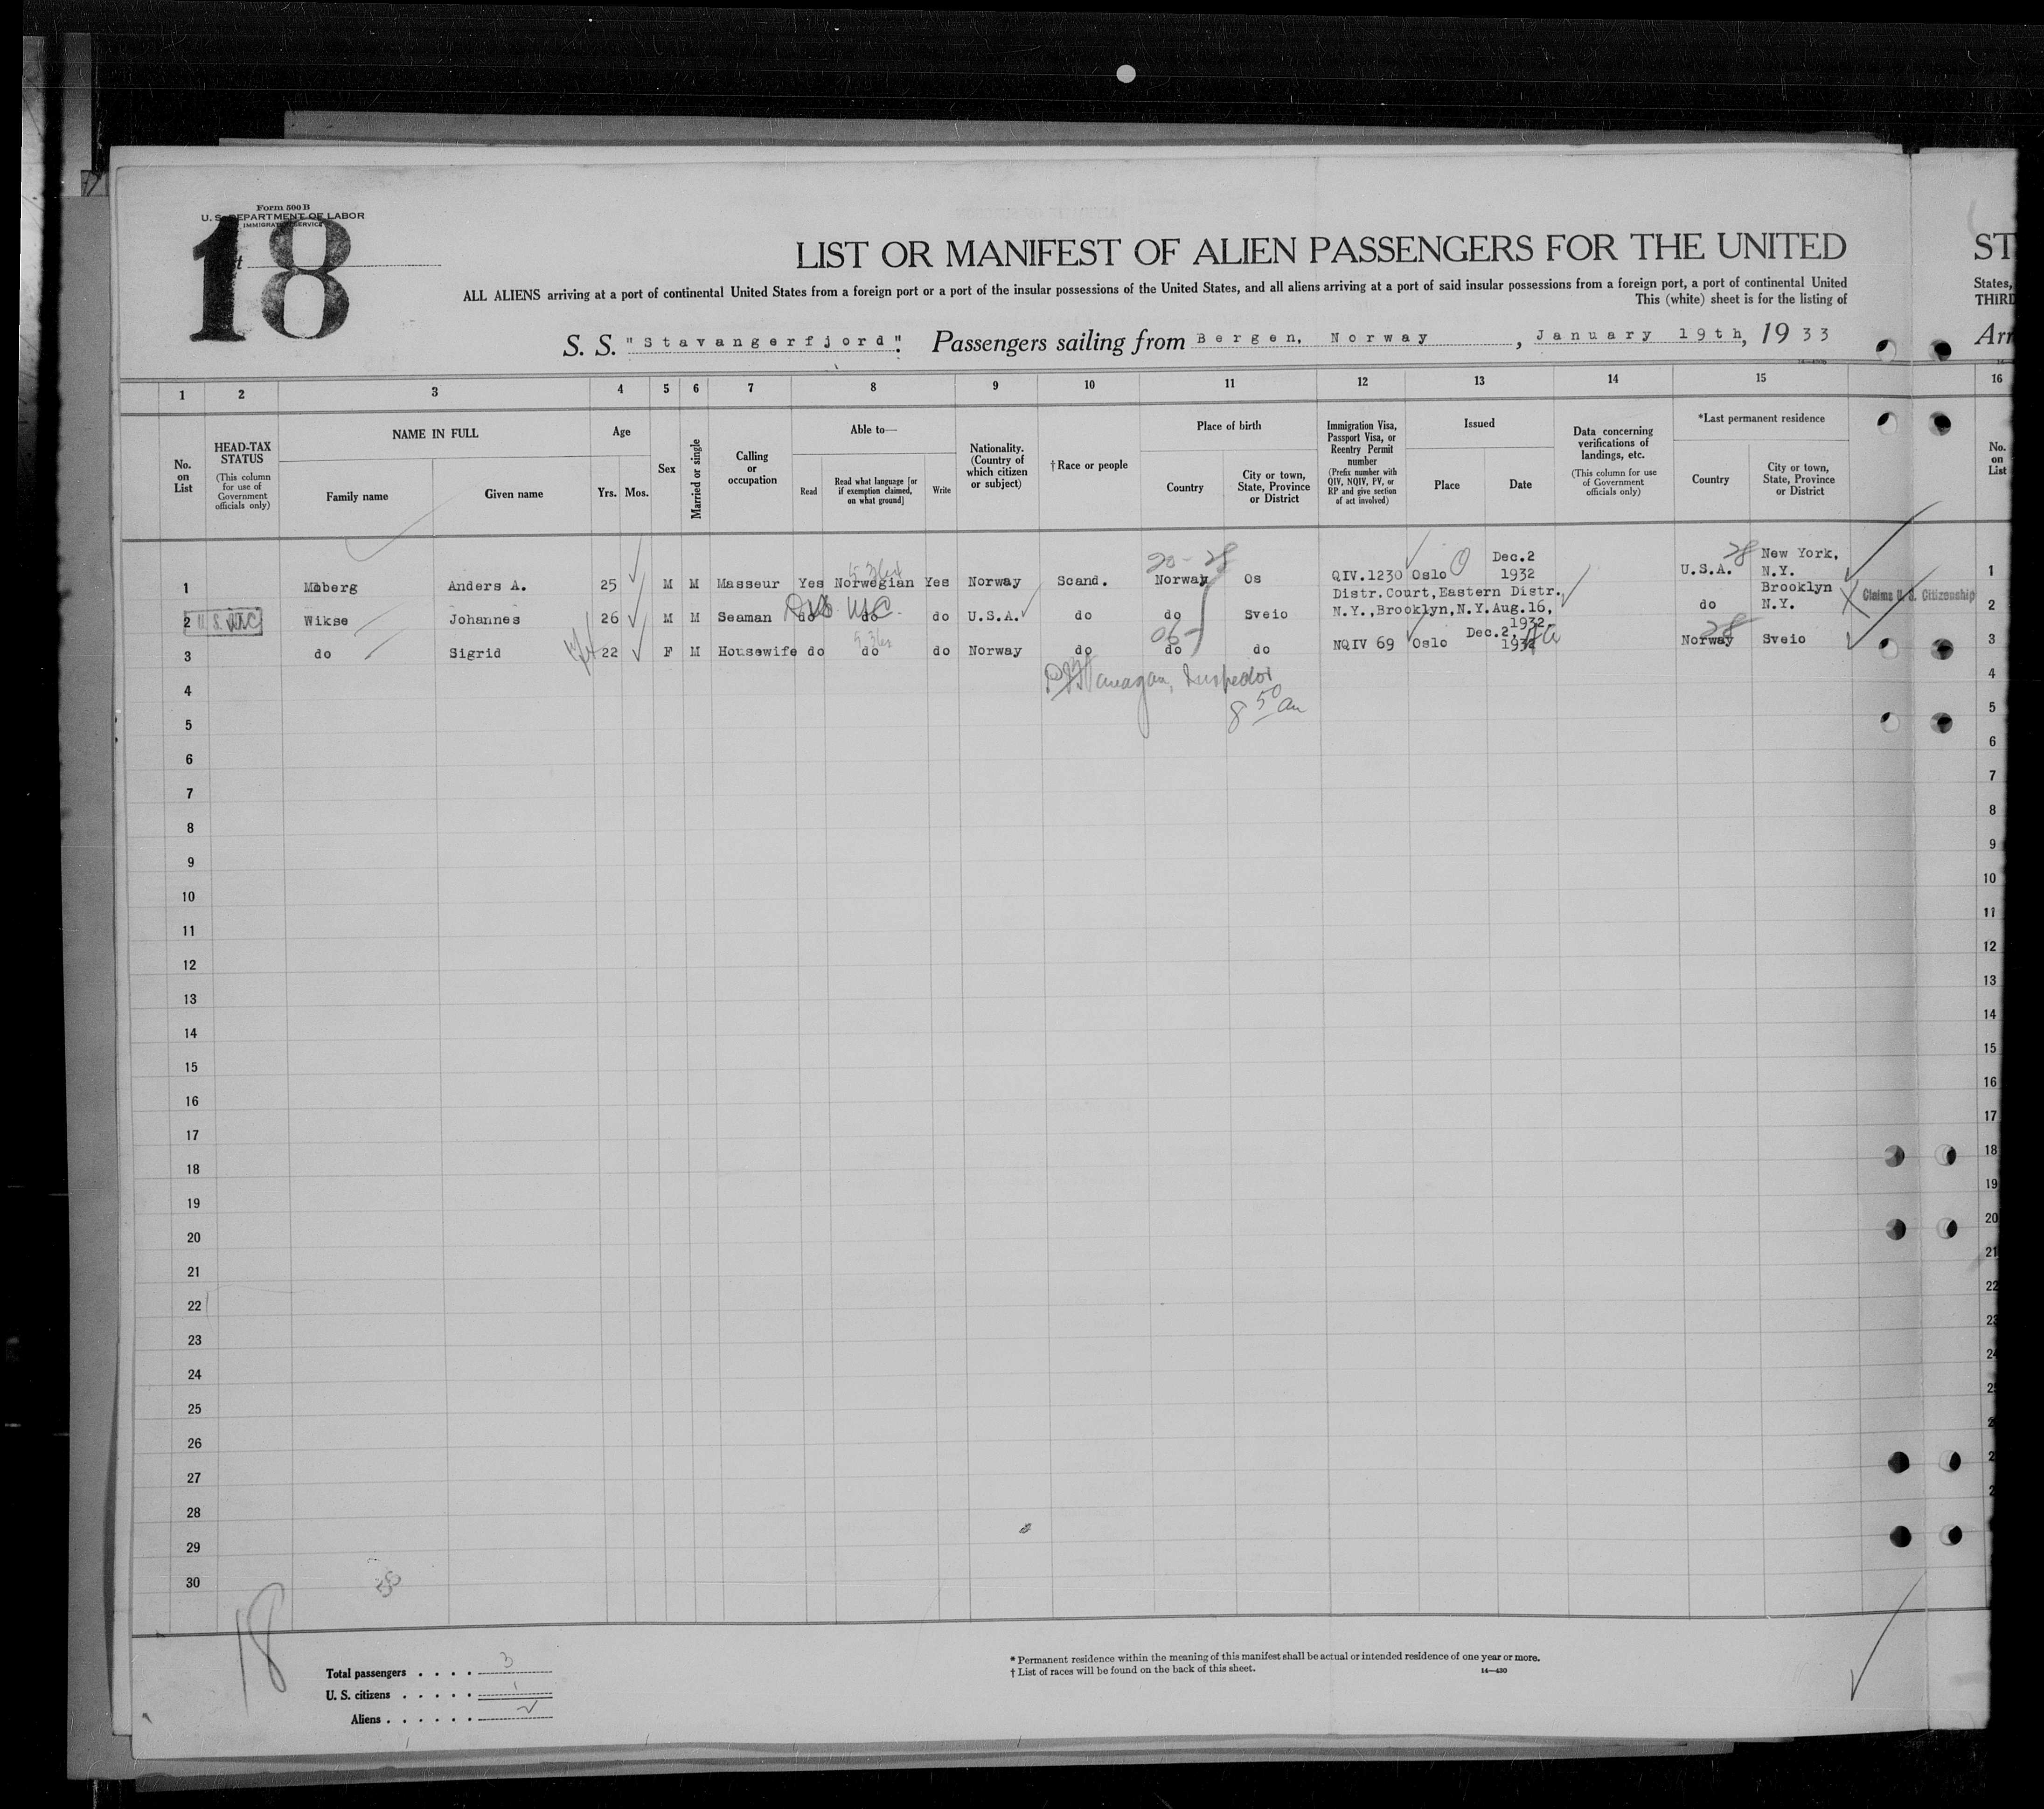 Form 500 B
U. S. DEPARTMENT OF LABOR
IMMIGRATION SERVICE
18
LIST OR MANIFEST OF ALIEN PASSENGERS FOR THE UNITED
ST
ALL ALIENS arriving at a port of continental United States from a foreign port or a port of the insular possessions of the United States, and all aliens arriving at a port of said insular possessions from a foreign port, a port of continental United
States,
This (white) sheet is for the listing of
THIRD
S. S. "Stavangerfjord". Passengers sailing from Bergen, Norway, January 19th, 1933
Arr
1 2 3 4 5 6 7 8 9 10 11 12 13 14 15 16
No. on List
HEAD-TAX STATUS (This column for use of Government officials only)
NAME IN FULL
Family name
Given name
Age
Yrs. Mos.
Sex
Married or single
Calling or occupation
Able to—
Read
Read what language [or if exemption claimed, on what ground]
Write
Nationality. (Country of which citizen or subject)
† Race or people
Place of birth
Country
City or town, State, Province or District
Immigration Visa, Passport Visa, or Reentry Permit number (Prefix number with QIV, NQIV, PV, or RP and give section of act involved)
Issued
Place
Date
Data concerning verifications of landings, etc. (This column for use of Government officials only)
*Last permanent residence
Country
City or town, State, Province or District
No. on List
20 - 28
1 Moberg Anders A. 25 M M Masseur Yes Norwegian Yes Norway Scand. Norway Os QIV.1230 Oslo Dec.2 1932 U.S.A. 28 New York, N.Y. 1
2 Wikse Johannes 26 M M Seaman do do do U.S.A. do do Sveio Distr.Court,Eastern Distr. N.Y.,Brooklyn,N.Y.Aug.16, 1932. do Brooklyn N.Y. Claims U. S. Citizenship 2
USC
3 do Sigrid 22 F M Housewife do do do Norway do do do NQIV 69 Oslo Dec.2, 1932 Norway 28 Sveio 3
Inspector
8 50 am
4 4
5 5
6 6
7 7
8 8
9 9
10 10
11 11
12 12
13 13
14 14
15 15
16 16
17 17
18 18
19 19
20 20
21 21
22 22
23
24
25
26
27
28
29
30
18
Total passengers . . . . 3
U. S. citizens . . . . . 1
Aliens . . . . . . 2
* Permanent residence within the meaning of this manifest shall be actual or intended residence of one year or more.
† List of races will be found on the back of this sheet.
14—430